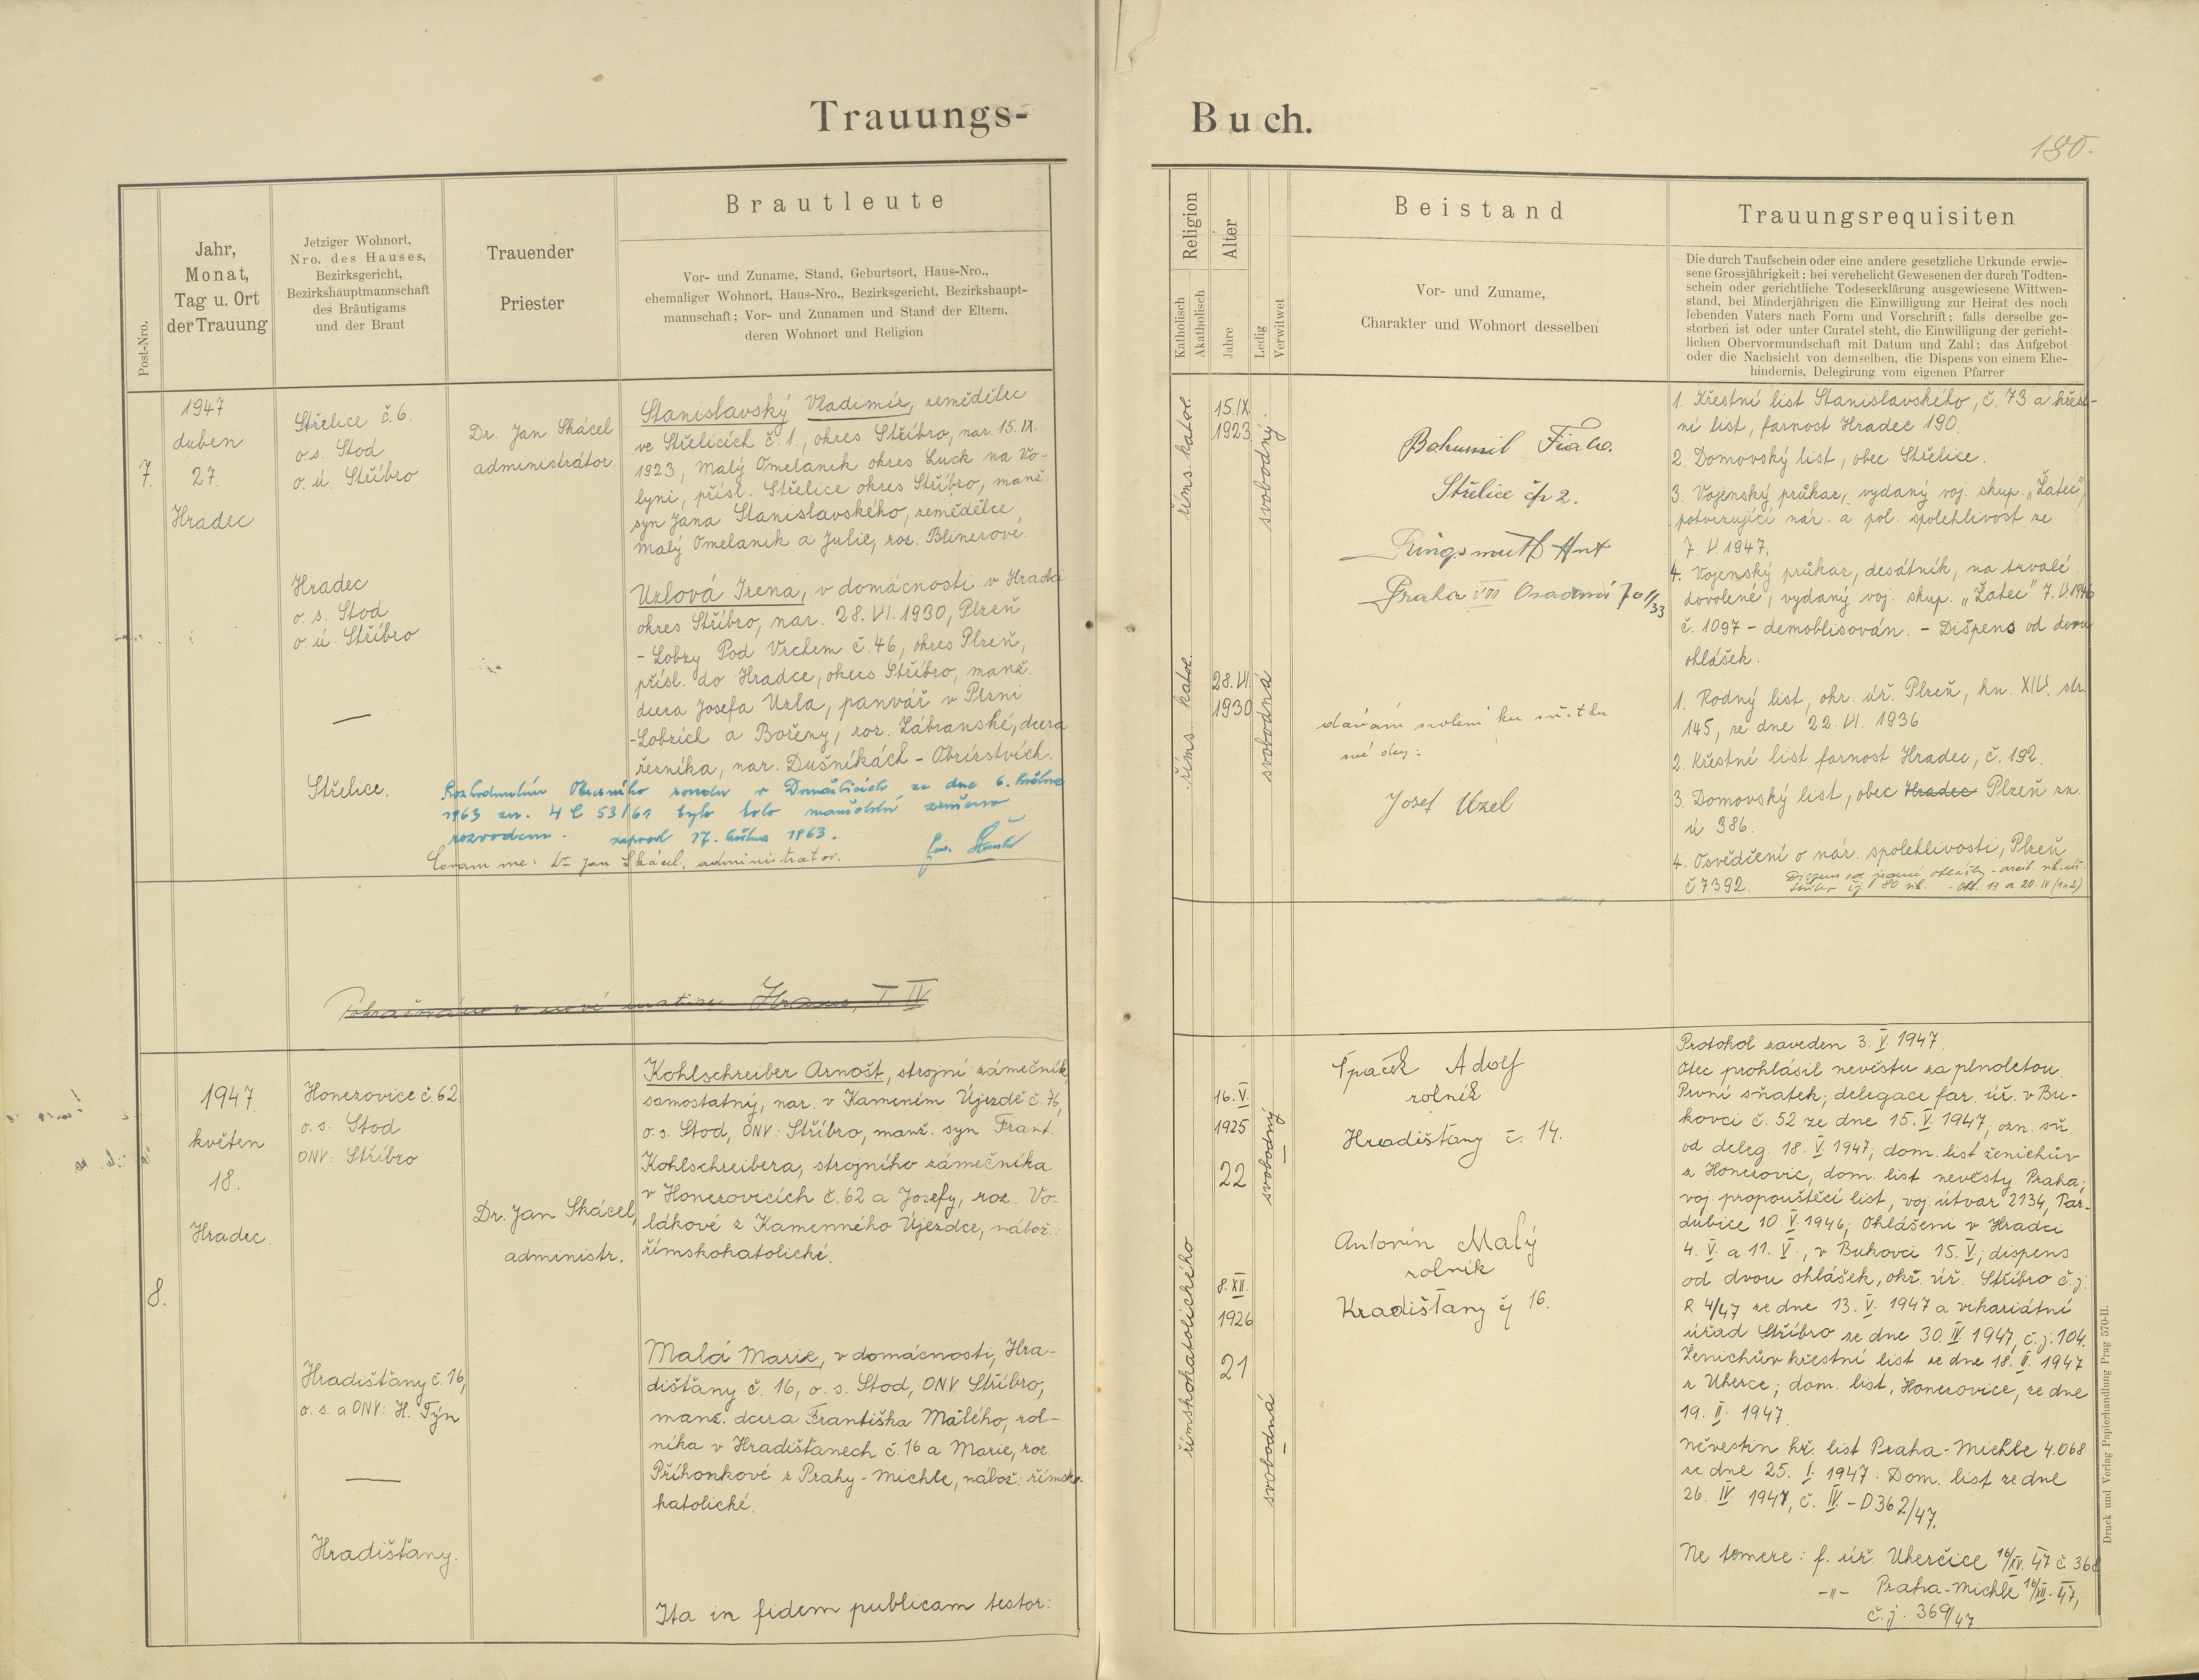 Trauungs-
Buch.
180.
Post-Nro.
Jahr,
Monat,
Tag u. Ort
der Trauung
Jetziger Wohnort,
Nro. des Hauses,
Bezirksgericht,
Bezirkshauptmannschaft
des Bräutigams
und der Braut
Trauender
Priester
Brautleute
Vor- und Zuname, Stand, Geburtsort, Haus-Nro.,
ehemaliger Wohnort, Haus-Nro., Bezirksgericht, Bezirkshaupt-
mannschaft; Vor- und Zunamen und Stand der Eltern,
deren Wohnort und Religion
Religion
Katholisch
Akatholisch
Alter
Jahre
Ledig
Verwitwet
Beistand
Vor- und Zuname,
Charakter und Wohnort desselben
Trauungsrequisiten
Die durch Taufschein oder eine andere gesetzliche Urkunde erwie-
sene Grossjährigkeit; bei verehelicht Gewesenen der durch Todten-
schein oder gerichtliche Todeserklärung ausgewiesene Wittwen-
stand, bei Minderjährigen die Einwilligung zur Heirat des noch
lebenden Vaters nach Form und Vorschrift; falls derselbe ge-
storben ist oder unter Curatel steht, die Einwilligung der gericht-
lichen Obervormundschaft mit Datum und Zahl; das Aufgebot
oder die Nachsicht von demselben, die Dispens von einem Ehe-
hindernis, Delegirung vom eigenen Pfarrer
7.
1947
duben
27.
Hradec
Střelice č. 6.
o.s. Stod
o. ú. Stříbro
Hradec
o. s. Stod
o ú. Stříbro
Střelice.
Dr. Jan Skácel
administrátor.
Stanislavský Vladimír, zemědělec
ve Střelicích č. 1., okres Stříbro, nar. 15. IX.
1923, Malý Omelanik okres Luck na Vo-
lyni, přísl. Střelice okres Stříbro, manž.
syn Jana Stanislavského, zemědělce,
Malý Omelanik a Julie, roz. Blinerové.
Uzlová Irena, v domácnosti v Hradci
okres Stříbro, nar. 28. VI. 1930, Plzeň
- Lobzy Pod Vrchem č. 46, okres Plzeň,
přísl. do Hradce, okres Stříbro, manž.
dcera Josefa Uzla, panvář v Plzni
-Lobzích a Boženy, roz. Zábranské, dcera
řezníka, nar. Dušníkách - Obrístvích.
Rozhodnutím Okresního soudu v Domažlicích ze dne 6. května
1963 zn. 4 C 53/61 bylo toto manželství zrušeno
rozvodem. zapsal 17. května 1963.
Coram me: Dr Jan Skácel, administrator.
říms. katol.
15. IX.
1923
svobodný.
říms. katol.
28. VI.
1930
svobodná
Bohumil Fiala.
Střelice čp 2.
Ringsmuth Ant
Praha VIII Osadní
dávám svolení ku sňatku
své dcery:
Josef Uzel
1. Křestní list Stanislavského, č. 73 a křest-
ní list, farnost Hradec 190.
2. Domovský list, obec Střelice.
3. Vojenský průkaz, vydaný voj. skup. „Žatec",
potvrzující nár. a pol. spolehlivost ze
7. V. 1947.
4. Vojenský průkaz, desátník, na trvalé
dovolené, vydaný voj. skup. „Žatec" 7. V. 1946
č. 1097 - demoblisován. - Dispens od dvou
ohlášek.
1. Rodný list, okr. úř. Plzeň, kn. XIV. str.
145, ze dne 22. VI. 1936
2. Křestní list farnost Hradec, č. 192.
3. Domovský list, obec Hradec Plzeň zn.
ú 386.
4. Osvědčení o nár. spolehlivosti, Plzeň
č 7392. Dispens od jedné ohlášky
Pokračováno v nové matrice Hradec, T. IV
8.
1947
květen
18.
Hradec.
Honezovice č. 62
o. s. Stod
ONV: Stříbro
Hradišťany č. 16,
o. s. a ONV: H. Týn
Hradišťany.
Dr. Jan Skácel,
administr.
Kohlschreiber Arnošt, strojní zámečník,
samostatný, nar. v Kameném Újezdě č. 76,
o. s. Stod, ONV: Stříbro, manž. syn Frant.
Kohlschreibera, strojního zámečníka
v Honezovicích č. 62 a Josefy, roz. Vo-
lákové z Kamenného Újezdce, nábož.:
římskokatolické.
Malá Marie, v domácnosti, Hra-
dišťany č. 16, o. s. Stod, ONV Stříbro,
manž. dcera Františka Malého, rol-
níka v Hradišťanech č. 16 a Marie, roz.
Příhonkové z Prahy - Michle, nábož: římsko-
katolické.
Ita in fidem publicam testor:
římskokatolického
16. V.
1925
22
svobodný
8. XII.
1926
21
svobodná
Špaček Adolf
rolník
Hradišťany č. 14.
Antonín Malý
rolník
Hradišťany čj 16.
Protokol zaveden 3. V. 1947.
Otec prohlásil nevěstu za plnoletou.
První sňatek; delegace far. úř. v Bu-
kovci č. 52 ze dne 15. V. 1947; ozn. sň.
od deleg. 18. V. 1947; dom. list ženichův
z Honezovic, dom. list nevěsty Praha;
voj. propouštěcí list, voj. útvar 2134, Par-
dubice 10. V. 1946; Ohlášeni v Hradci
4. V. a 11. V., v Bukovci 15. V.; dispens
od dvou ohlášek, okr. úř. Stříbro č. j.
R 4/47 ze dne 13. V. 1947 a vikariátní
úřad Stříbro ze dne 30. IV. 1947, č. j: 104.
Ženichův křestní list ze dne 18. II. 1947
z Uherce; dom. list, Honezovice, ze dne
19. II. 1947.
Nevěstin kř. list Praha - Michle 4.068
ze dne 25. I. 1947. Dom. list ze dne
26. IV. 1947, č. IV. - D 362/47.
Ne temere: f. úř. Uherčice 16/XV. 47 č. 368
-"- Praha - Michle 16/XII. 47,
č. j. 369/47
Druck und Verlag Papierhandlung Prag 570-II.